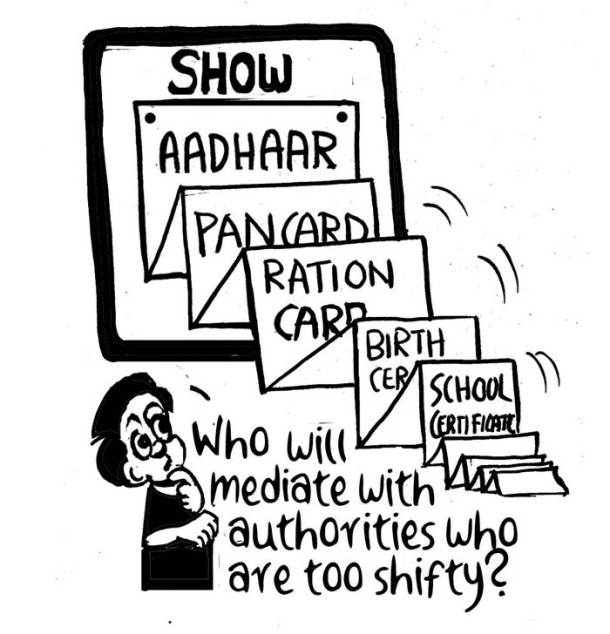 SHOW
AADHAAR
PANCARD
RATION
CARD
BIRTH
CER
SCHOOL
CERTIFICATE
Who will
mediate with
authorities who
are too shifty?